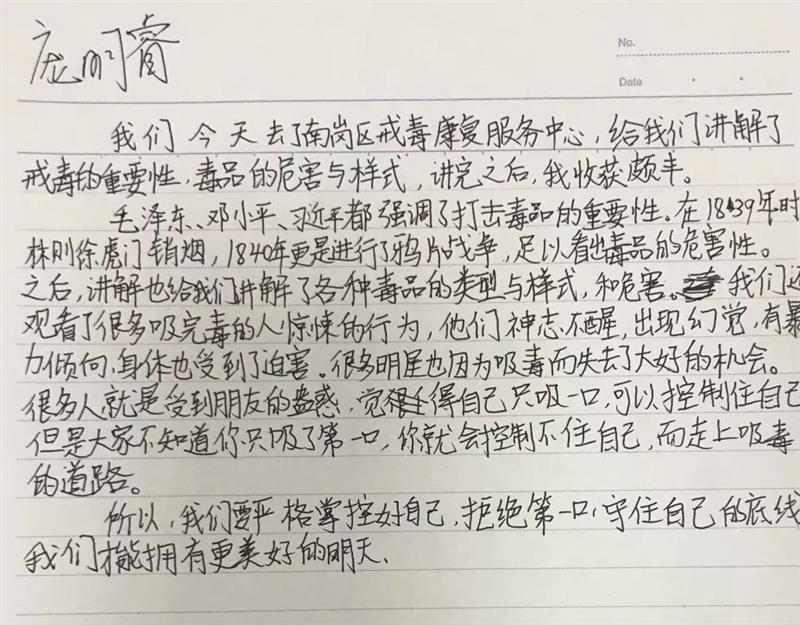 庞明睿
No.
Date
我们今天去了南岗区戒毒康复服务中心，给我们讲解了
戒毒的重要性，毒品的危害与样式，讲完之后，我收获颇丰。
毛泽东、邓小平、习近平都强调了打击毒品的重要性。在1839年时
林则徐虎门销烟，1840年更是进行了鸦片战争，足以看出毒品的危害性。
之后，讲解也给我们讲解了各种毒品的类型与样式，和危害。我们还
观看了很多吸完毒的人惊悚的行为，他们神志不醒，出现幻觉，有暴
力倾向，身体也受到了迫害。很多明星也因为吸毒而失去了大好的机会。
很多人就是受到朋友的蛊惑，觉得自己只吸一口，可以控制住自己
但是大家不知道你只吸了第一口，你就会控制不住自己，而走上吸毒
的道路。
所以，我们要严格掌控好自己，拒绝第一口，守住自己的底线
我们才能拥有更美好的明天、